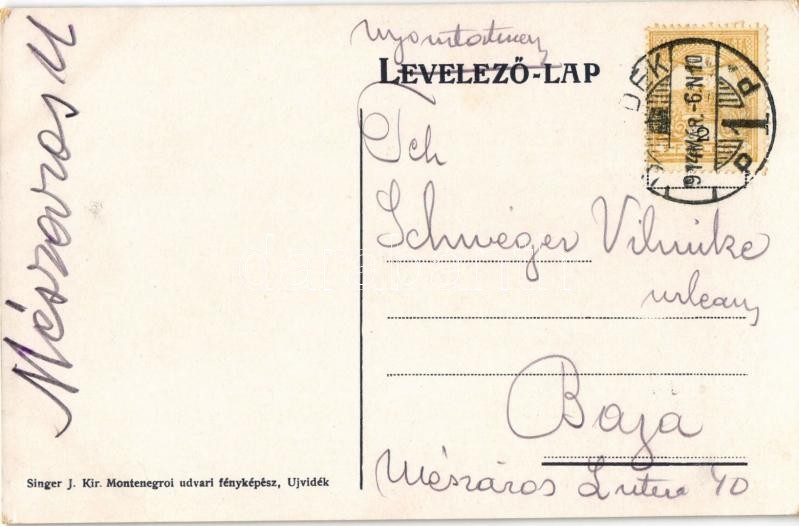 Mészáros M
Nyomtatvány
LEVELEZŐ-LAP
DÉK
914 MÁR. -6. N 10
Tek
Schwéger Vilmike
urleany
Baja
Mészáros L utca 40
Singer J. Kir. Montenegroi udvari fényképész, Ujvidék